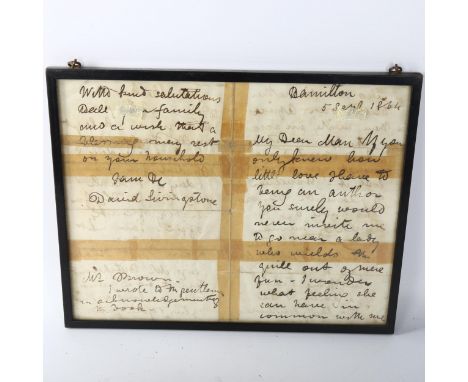 With kind salutations
Dele your family
and a wish that a
blessing may rest
on your household
I am &c
David Livingstone
Mr Brown
I wrote to the gentleman
in acknowledgement of
Book
Hamilton
5 Sept 1864
My Dear Man If you
only knew how
little love I have to
being an author
you surely would
never invite me
to go near a lady
who wields the
quill out of mere
fun - I wonder
what feeling she
can have in
common with me